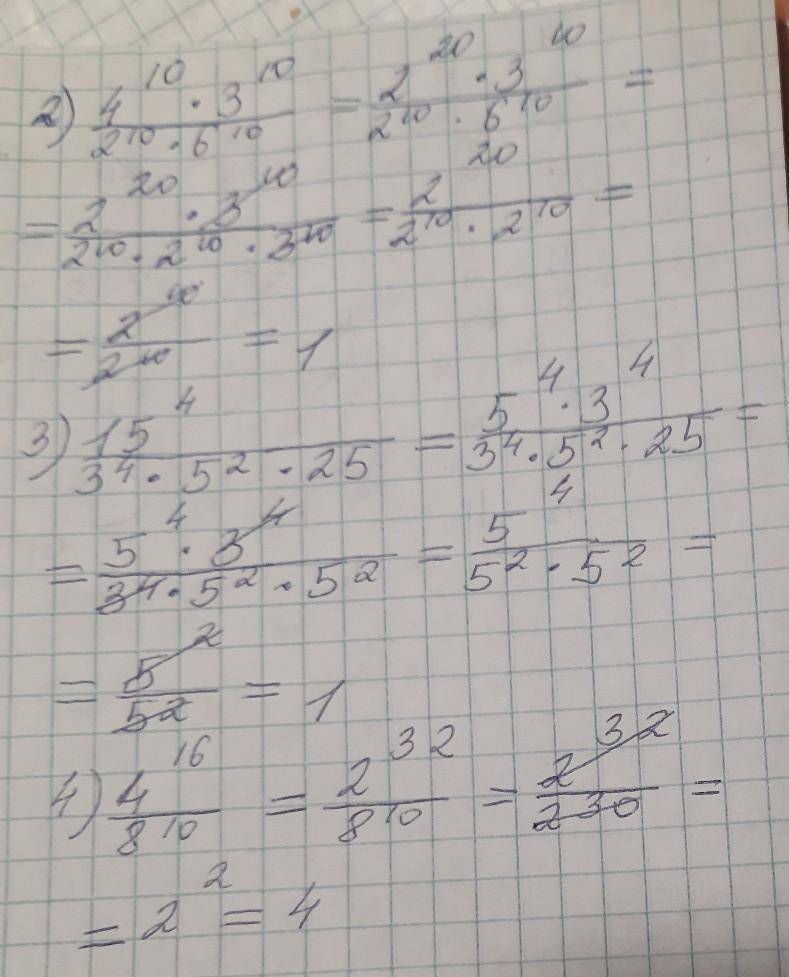 2) (4^10 · 3^10)/(2^10 · 6^10) = (2^20 · 3^10)/(2^10 · 6^10) =
= (2^20 · 3^10)/(2^10 · 2^10 · 3^10) = 2^20/(2^10 · 2^10) =
= 2^10/2^10 = 1
3) 15^4/(3^4 · 5^2 · 25) = (5^4 · 3^4)/(3^4 · 5^2 · 25) =
= (5^4 · 3^4)/(3^4 · 5^2 · 5^2) = 5^4/(5^2 · 5^2) =
= 5^2/5^2 = 1
4) 4^16/8^10 = 2^32/8^10 = 2^32/2^30 =
= 2^2 = 4